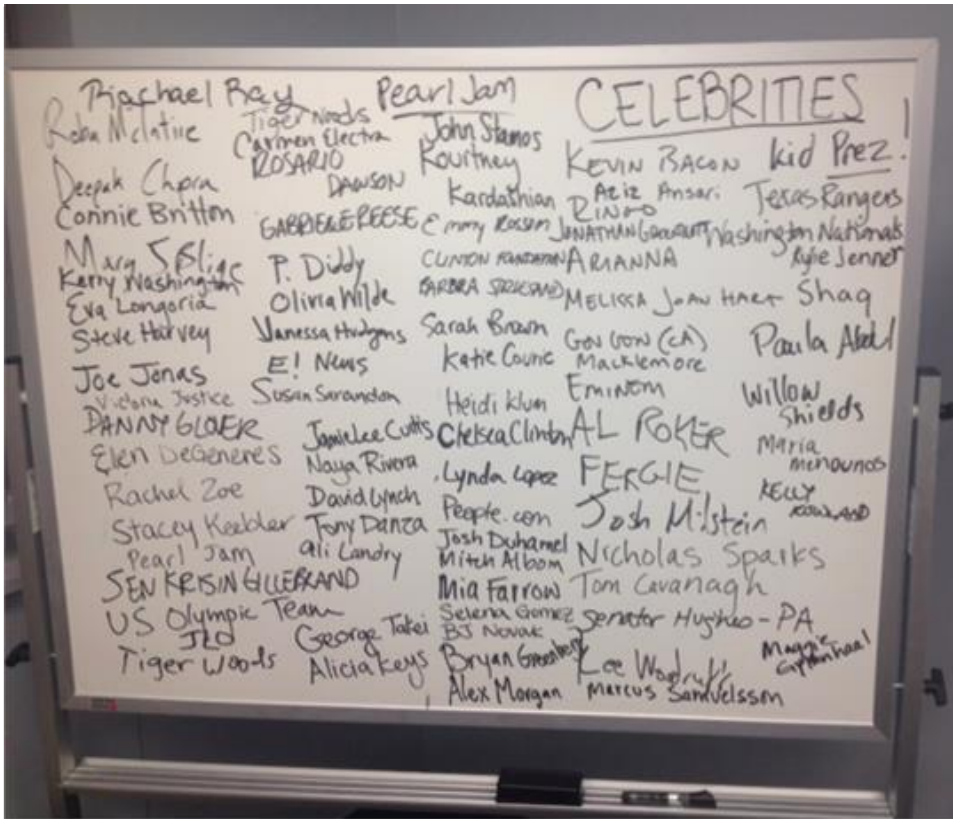 CELEBRITIES
Rachael Ray
Reba McIntire
Deepak Chpra
Connie Britton
Mary J Blige
Kerry Washington
Eva Longoria
Steve Harvey
Joe Jonas
Victoria Justice
DANNY GLOER
Ellen DeGeneres
Rachel Zoe
Stacey Keebler
Pearl Jam
SEN KRISIN GILLEBRAND
US Olympic Team
JLO
Tiger Woods
Tiger Woods
Carmen Electra
ROSARIO
DAWSON
GABRIELLE REESE
P. Diddy
Olivia Wilde
Vanessa Hudgens
E! News
Susan Sarandon
Jamie Lee Curtis
Naya Rivera
David Lynch
Tony Danza
Ali Landry
George Takei
Alicia Keys
Pearl Jam
John Stamos
Kourtney
Kardashian
Emmy Rossum
CLINTON FOUNDATION
BARBRA STREISAND
Sarah Brown
Katie Couric
Heidi Klum
Chelsea Clinton
Lynda Lopez
People.com
Josh Duhamel
Mitch Albom
Mia Farrow
Selena Gomez
BJ Novak
Bryan Greenberg
Alex Morgan
KEVIN BACON
Aziz Ansari
RINGO
JONATHAN
ARIANNA
MELISSA JOAN HART
GOV (CA)
Macklemore
Eminem
AL ROKER
FERGIE
Josh Milstein
Nicholas Sparks
Tom Cavanagh
Senator Hughes - PA
Lee Woodruff
Marcus Samuelsson
Kid Prez!
Texas Rangers
Washington Nationals
Kylie Jenner
Shaq
Paula Abdul
Willow
Shields
Maria
menounos
KELLY
ROWLAND
Maggie
Gyllenhaal